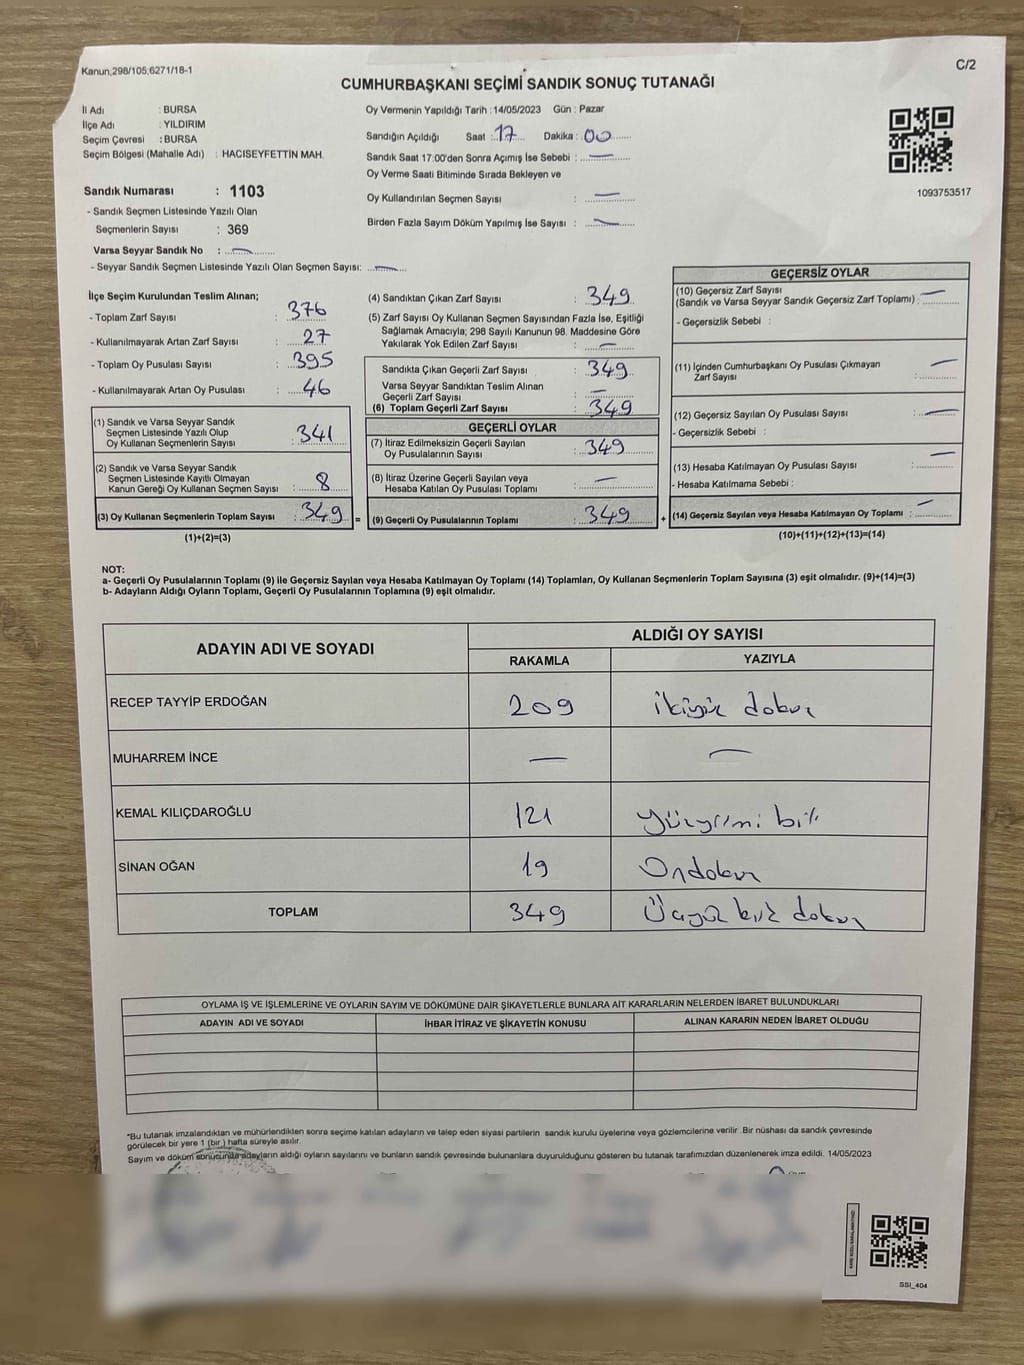 Kanun,298/105;6271/18-1
C/2
CUMHURBAŞKANI SEÇİMİ SANDIK SONUÇ TUTANAĞI
İl Adı : BURSA
İlçe Adı : YILDIRIM
Seçim Çevresi : BURSA
Seçim Bölgesi (Mahalle Adı) : HACISEYFETTİN MAH.
Oy Vermenin Yapıldığı Tarih :14/05/2023 Gün : Pazar
Sandığın Açıldığı Saat : 17 Dakika : 00
Sandık Saat 17:00'den Sonra Açımış İse Sebebi : —
Oy Verme Saati Bitiminde Sırada Bekleyen ve
Oy Kullandırılan Seçmen Sayısı : —
Birden Fazla Sayım Döküm Yapılmış İse Sayısı : —
1093753517
Sandık Numarası : 1103
- Sandık Seçmen Listesinde Yazılı Olan
Seçmenlerin Sayısı : 369
Varsa Seyyar Sandık No : —
- Seyyar Sandık Seçmen Listesinde Yazılı Olan Seçmen Sayısı: —
İlçe Seçim Kurulundan Teslim Alınan;
- Toplam Zarf Sayısı : 376
- Kullanılmayarak Artan Zarf Sayısı : 27
- Toplam Oy Pusulası Sayısı : 395
- Kullanılmayarak Artan Oy Pusulası : 46
(1) Sandık ve Varsa Seyyar Sandık
Seçmen Listesinde Yazılı Olup
Oy Kullanan Seçmenlerin Sayısı : 341
(2) Sandık ve Varsa Seyyar Sandık
Seçmen Listesinde Kayıtlı Olmayan
Kanun Gereği Oy Kullanan Seçmen Sayısı : 8
(3) Oy Kullanan Seçmenlerin Toplam Sayısı : 349
(1)+(2)=(3)
(4) Sandıktan Çıkan Zarf Sayısı : 349
(5) Zarf Sayısı Oy Kullanan Seçmen Sayısından Fazla İse, Eşitliği
Sağlamak Amacıyla; 298 Sayılı Kanunun 98. Maddesine Göre
Yakılarak Yok Edilen Zarf Sayısı : —
Sandıkta Çıkan Geçerli Zarf Sayısı : 349
Varsa Seyyar Sandıktan Teslim Alınan
Geçerli Zarf Sayısı : —
(6) Toplam Geçerli Zarf Sayısı : 349
GEÇERLİ OYLAR
(7) İtiraz Edilmeksizin Geçerli Sayılan
Oy Pusulalarının Sayısı : 349
(8) İtiraz Üzerine Geçerli Sayılan veya
Hesaba Katılan Oy Pusulası Toplamı : —
= (9) Geçerli Oy Pusulalarının Toplamı : 349 +
GEÇERSİZ OYLAR
(10) Geçersiz Zarf Sayısı
(Sandık ve Varsa Seyyar Sandık Geçersiz Zarf Toplamı) : —
- Geçersizlik Sebebi :
(11) İçinden Cumhurbaşkanı Oy Pusulası Çıkmayan
Zarf Sayısı : —
(12) Geçersiz Sayılan Oy Pusulası Sayısı : —
- Geçersizlik Sebebi :
(13) Hesaba Katılmayan Oy Pusulası Sayısı : —
- Hesaba Katılmama Sebebi :
(14) Geçersiz Sayılan veya Hesaba Katılmayan Oy Toplamı : —
(10)+(11)+(12)+(13)=(14)
NOT:
a- Geçerli Oy Pusulalarının Toplamı (9) ile Geçersiz Sayılan veya Hesaba Katılmayan Oy Toplamı (14) Toplamları, Oy Kullanan Seçmenlerin Toplam Sayısına (3) eşit olmalıdır. (9)+(14)=(3)
b- Adayların Aldığı Oyların Toplamı, Geçerli Oy Pusulalarının Toplamına (9) eşit olmalıdır.
ADAYIN ADI VE SOYADI
ALDIĞI OY SAYISI
RAKAMLA YAZIYLA
RECEP TAYYİP ERDOĞAN 209 ikiyüz dokuz
MUHARREM İNCE — —
KEMAL KILIÇDAROĞLU 121 yüzyirmi bir
SİNAN OĞAN 19 Ondokuz
TOPLAM 349 Üçyüz kırk dokuz
OYLAMA İŞ VE İŞLEMLERİNE VE OYLARIN SAYIM VE DÖKÜMÜNE DAİR ŞİKAYETLERLE BUNLARA AİT KARARLARIN NELERDEN İBARET BULUNDUKLARI
ADAYIN ADI VE SOYADI İHBAR İTİRAZ VE ŞİKAYETİN KONUSU ALINAN KARARIN NEDEN İBARET OLDUĞU
*Bu tutanak imzalandıktan ve mühürlendikten sonra seçime katılan adayların ve talep eden siyasi partilerin sandık kurulu üyelerine veya gözlemcilerine verilir .Bir nüshası da sandık çevresinde
görülecek bir yere 1 (bir ) hafta süreyle asılır.
Sayım ve döküm sonucunda adayların aldığı oyların sayılarını ve bunların sandık çevresinde bulunanlara duyurulduğunu gösteren bu tutanak tarafımızdan düzenlenerek imza edildi. 14/05/2023
SSI_404